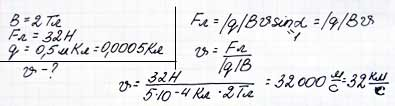 B = 2 Тл
Fл = 32Н
q = 0,5 мКл = 0,0005Кл
v - ?
Fл = |q|Bv sinα = |q|Bv
1
v = Fл / |q|B
v = 32Н / 5·10⁻⁴ Кл · 2Тл = 32000 м/с = 32 км/с